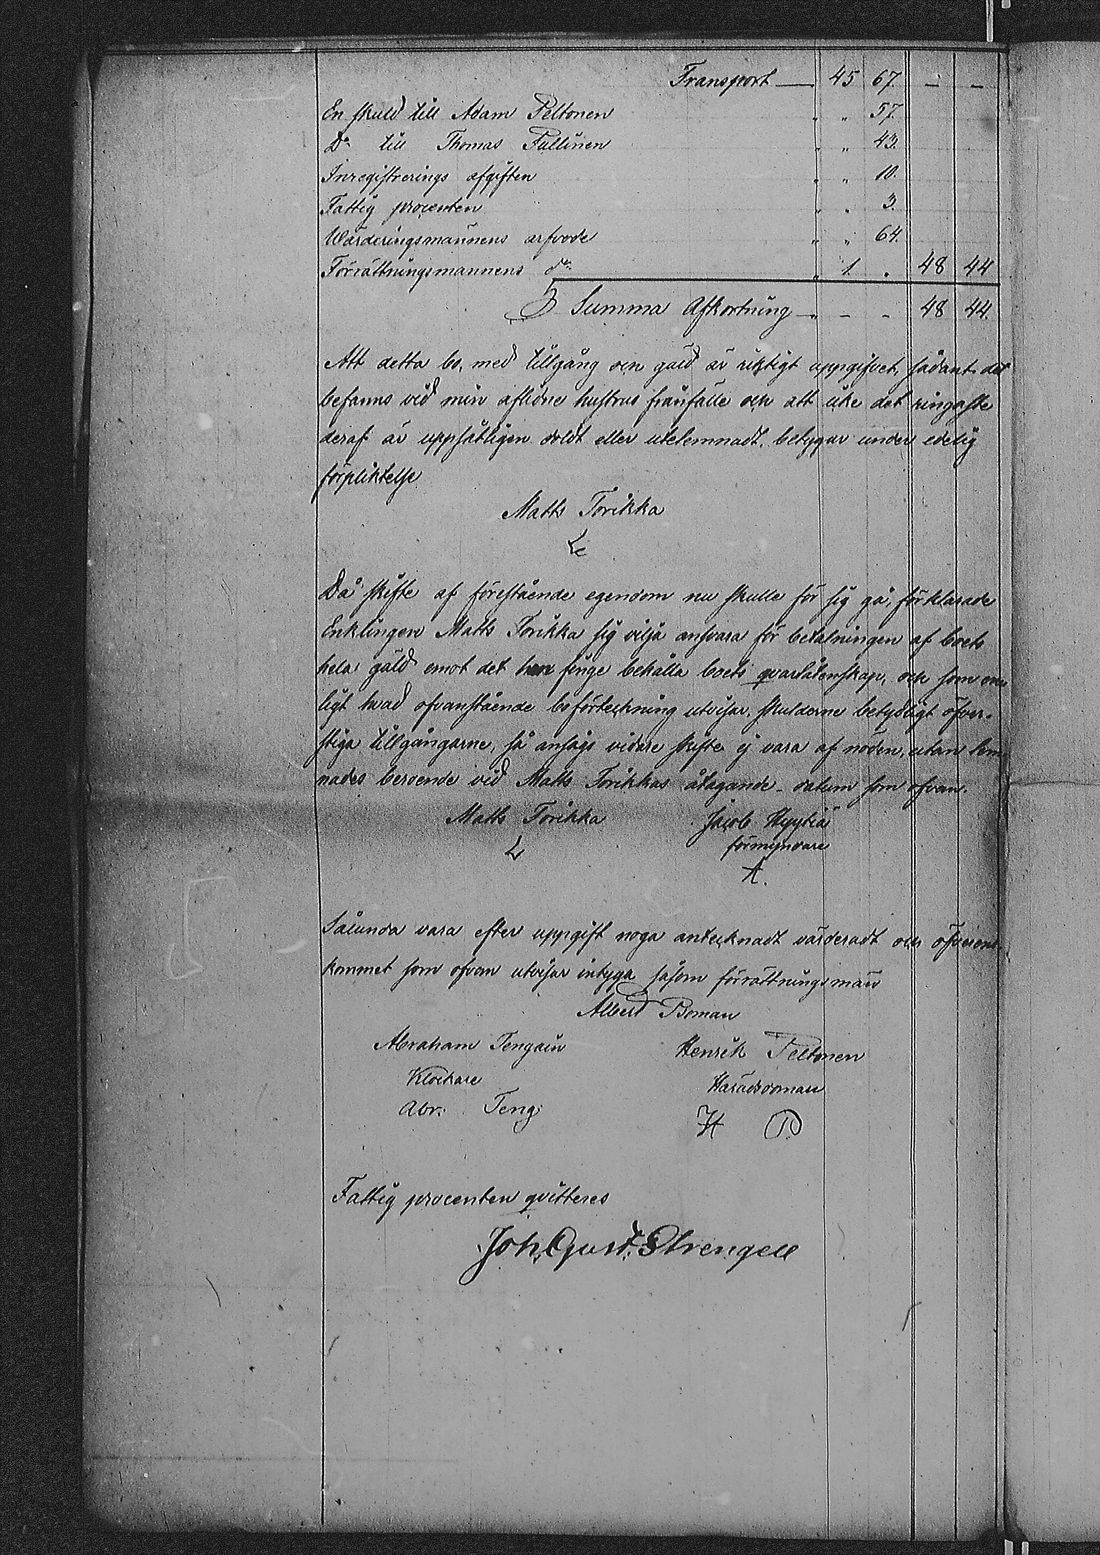 Transport — 45 67. - -
En skuld till Adam Peltonen " " 57.
Do till Thomas Pallinen " " 43.
Inregistrerings afgiften " " 10.
Fattig procenten " " 3.
Wärderingsmannens arfvode " " 64.
Förrättningsmannens do " 1. " 48 44
Summa Afkortning — " - - 48 44.
Att detta bo, med tillgång och gäld är riktigt uppgifvet, sådant det
befanns vid min aflidne hustrus frånfälle och att icke det ringaste
deraf är uppsåtligen doldt eller utelemnadt, betygar under edelig
förpliktelse
Matts Torikka
Då skifte af förestående egendom nu skulle för sig gå, förklarade
Enklingen Matts Torikka sig vilja ansvara för betalningen af boets
hela gäld emot det han finge behålla boets qvarlåtenskap, och som en-
ligt hvad ofvanstående boförteckning utvisar, skulderne betydligt öfver-
stiga tillgångarne, så ansågs vidare skifte ej vara af nöden, utan lem-
nades beroende vid Matts Torikkas åtagande - datum som ofvan.
Matts Torikka Jacob Hyytiä
förmyndare
A.
Sålunda vara efter uppgift noga antecknadt värderadt och öfverens-
kommet som ofvan utvisar intyga såsom förrättningsmän
Albert Boman
Abraham Tengain Henrik Peltonen
Klockare Häradsdomare
Abr: Teng: H P
Fattig procenten qvitteres
Joh. Gust. Strengell